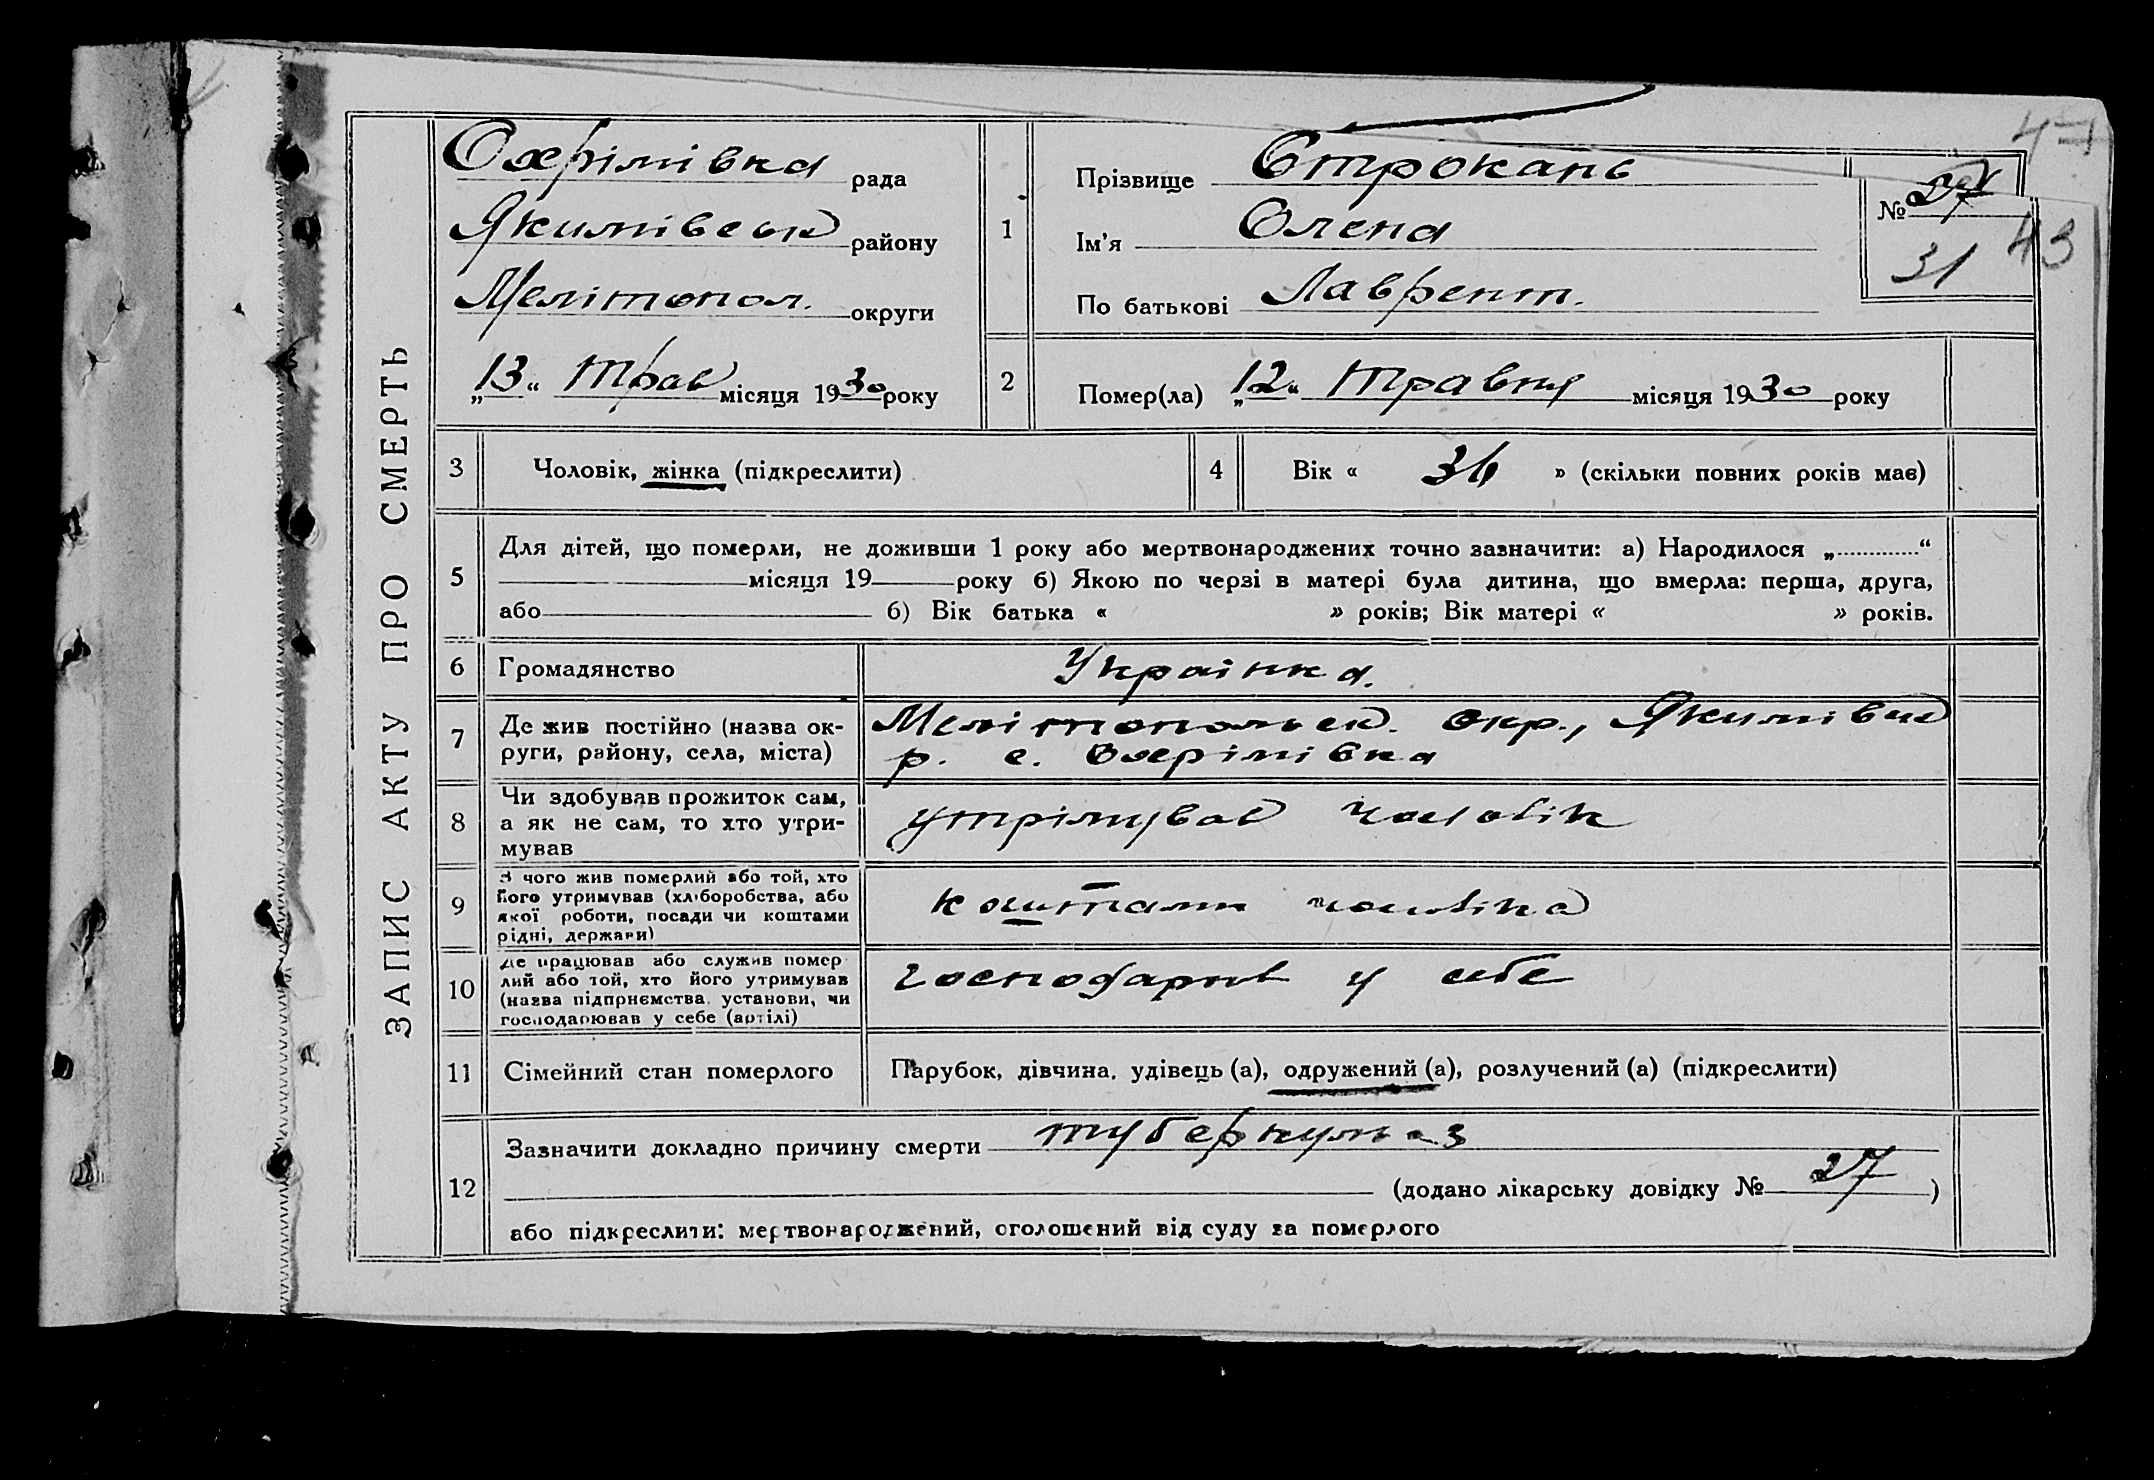 47
ЗАПИС АКТУ ПРО СМЕРТЬ
Охрімівка рада
Якимівськ району
Мелітопол. округи
„13“ Трав місяця 1930 року
1
Прізвище Строкань
Ім'я Олена
По батькові Лаврент.
№ 27
31 43
2
Помер(ла) „12“ Травня місяця 1930 року
3
Чоловік, жінка (підкреслити)
4
Вік « 36 » (скільки повних років має)
5
Для дітей, що померли, не доживши 1 року або мертвонароджених точно зазначити: а) Народилося „ “
місяця 19 року б) Якою по черзі в матері була дитина, що вмерла: перша, друга,
або б) Вік батька « » років; Вік матері « » років.
6
Громадянство
Українка.
7
Де жив постійно (назва ок-
руги, району, села, міста)
Мелітопольск. окр., Якимівск
р. с. Охрімівка
8
Чи здобував прожиток сам,
а як не сам, то хто утри-
мував
утрімував чоловік
9
З чого жив померлий або той, хто
його утримував (хліборобства, або
якої роботи, посади чи коштами
рідні, держави)
коштами чоловіка
10
Де працював або служив помер
лий або той, хто його утримував
(назва підприємства, установи, чи
господарював у себе (артілі)
господарюв у себе
11
Сімейний стан померлого
Парубок, дівчина, удівець (а), одружений (а), розлучений (а) (підкреслити)
12
Зазначити докладно причину смерти туберкульоз
(додано лікарську довідку № 27)
або підкреслити: мертвонароджений, оголошений від суду за померлого